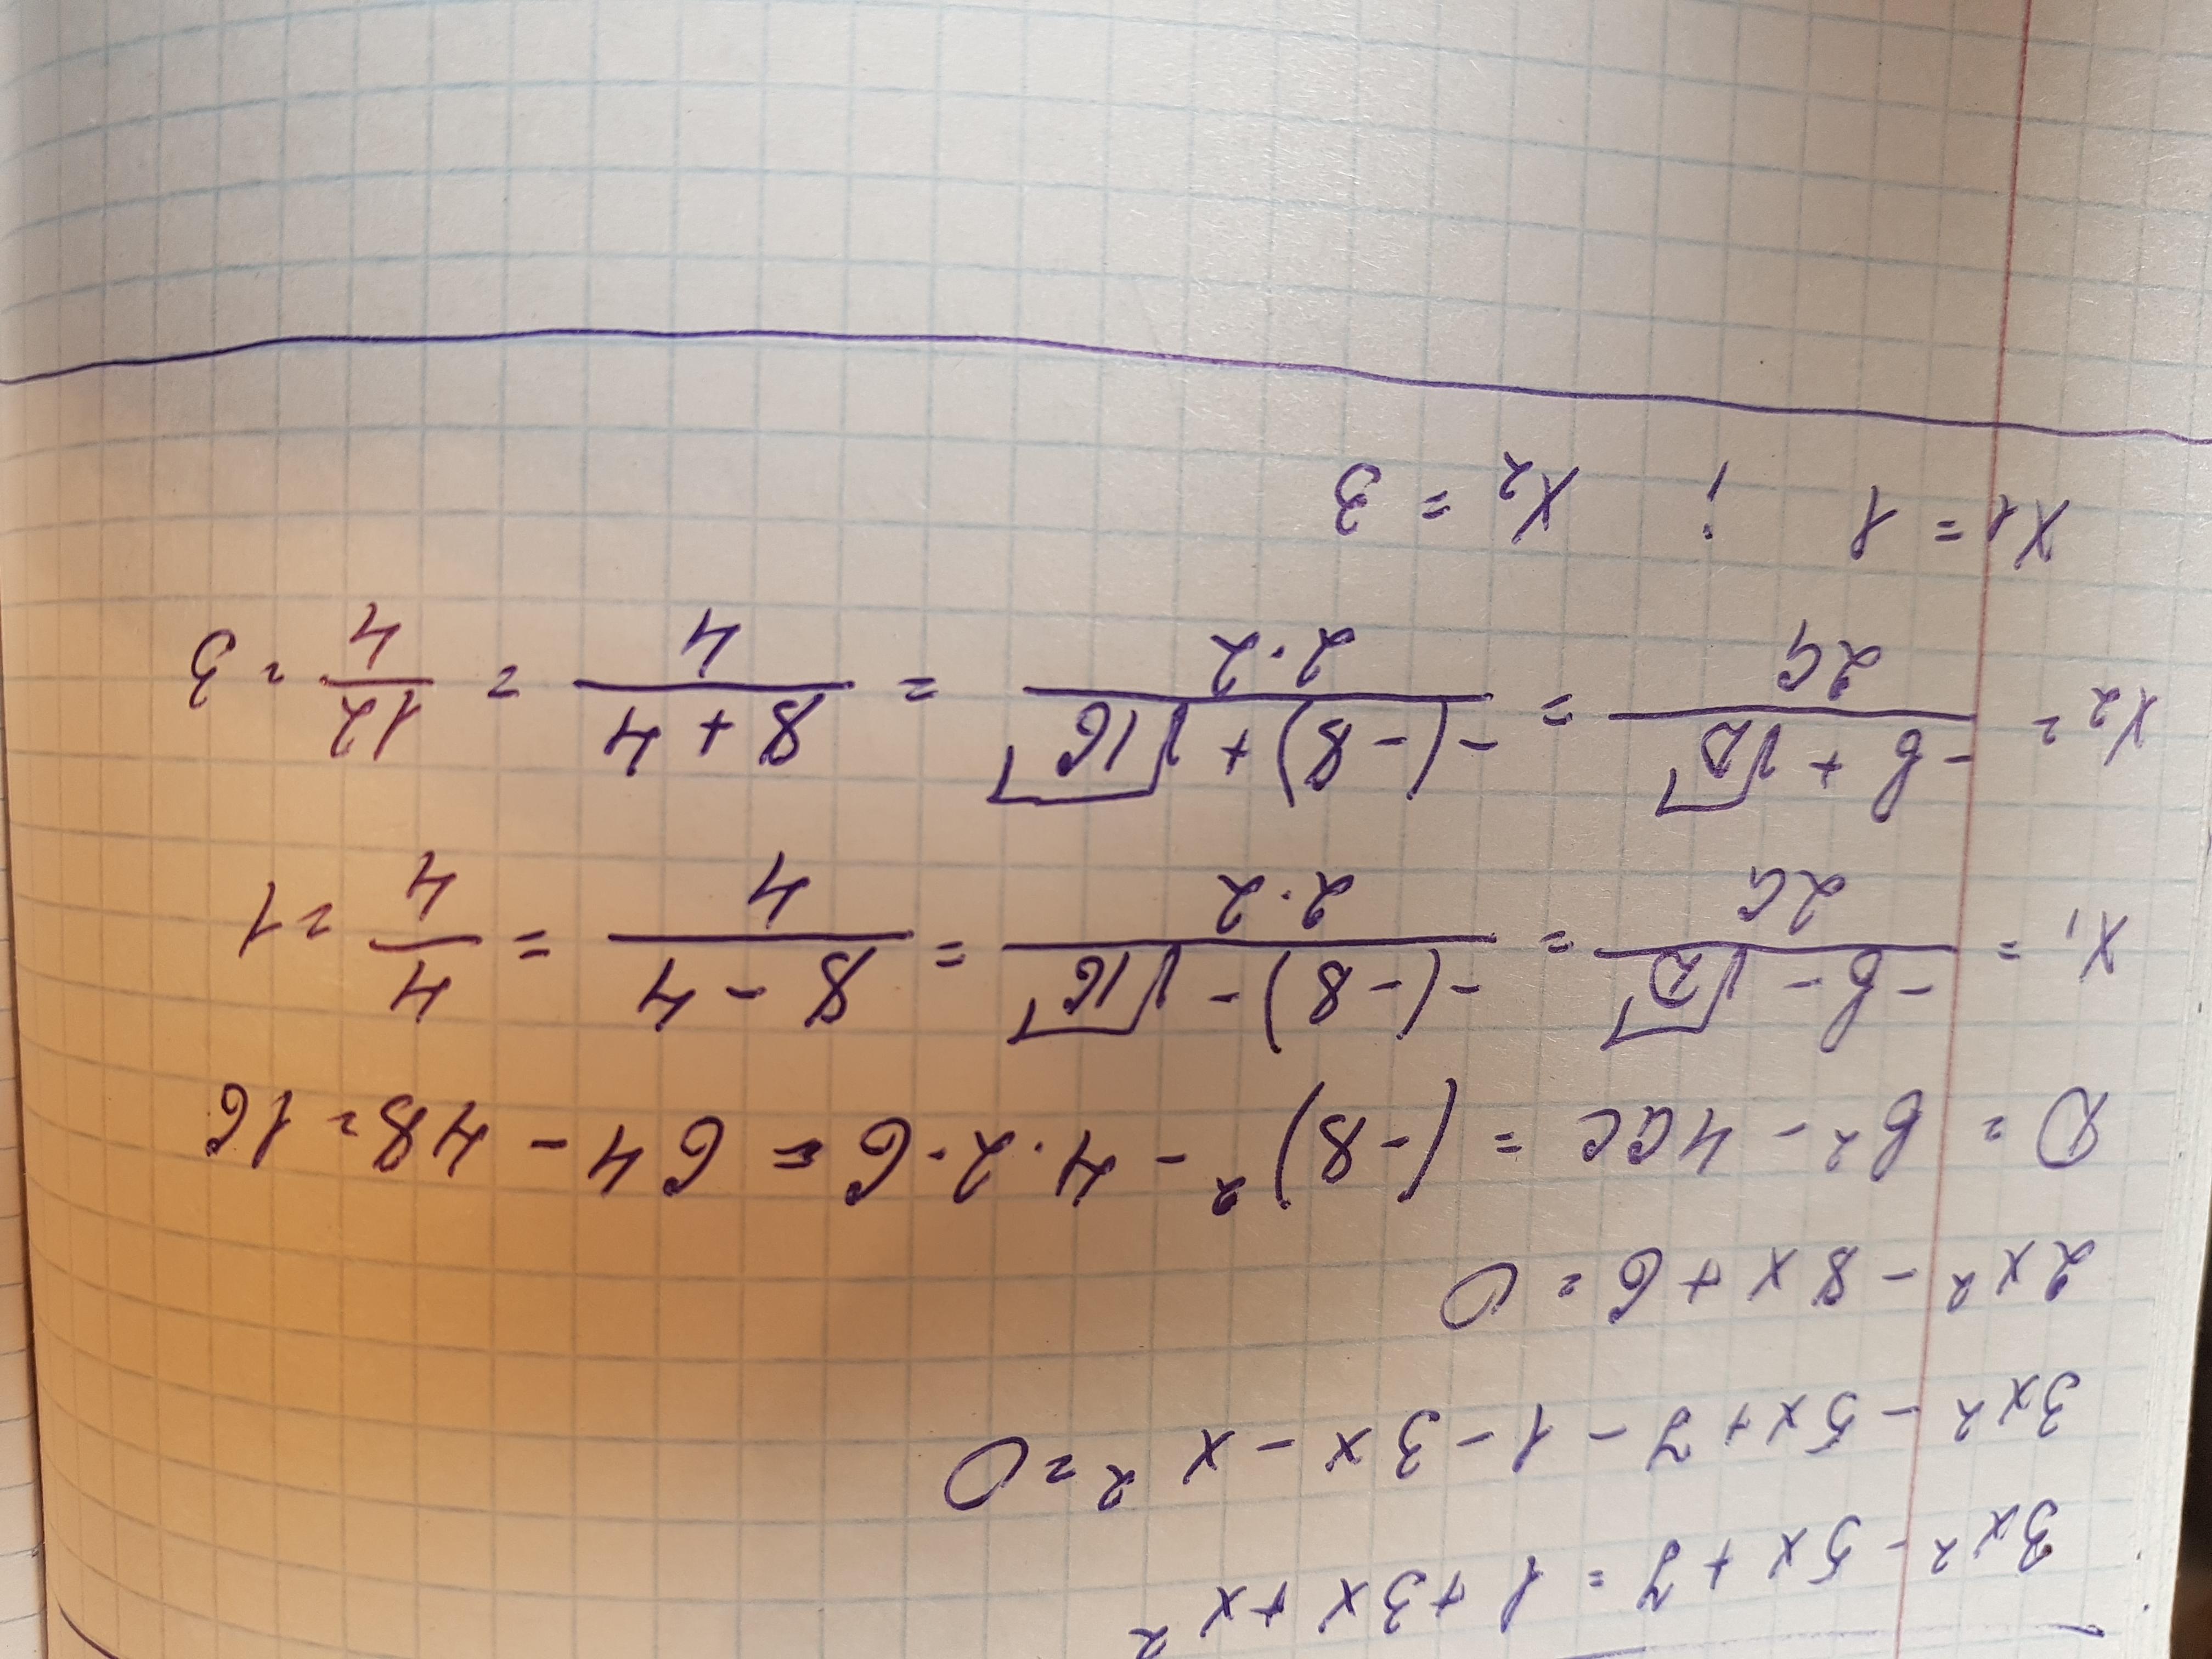 3x² - 5x + 7 = 1 + 3x + x²
3x² - 5x + 7 - 1 - 3x - x² = 0
2x² - 8x + 6 = 0
D = b² - 4ac = (-8)² - 4·2·6 = 64 - 48 = 16
x₁ = (-b - √D)/(2a) = (-(-8) - √16)/(2·2) = (8 - 4)/4 = 4/4 = 1
x₂ = (-b + √D)/(2a) = (-(-8) + √16)/(2·2) = (8 + 4)/4 = 12/4 = 3
x₁ = 1 ; x₂ = 3